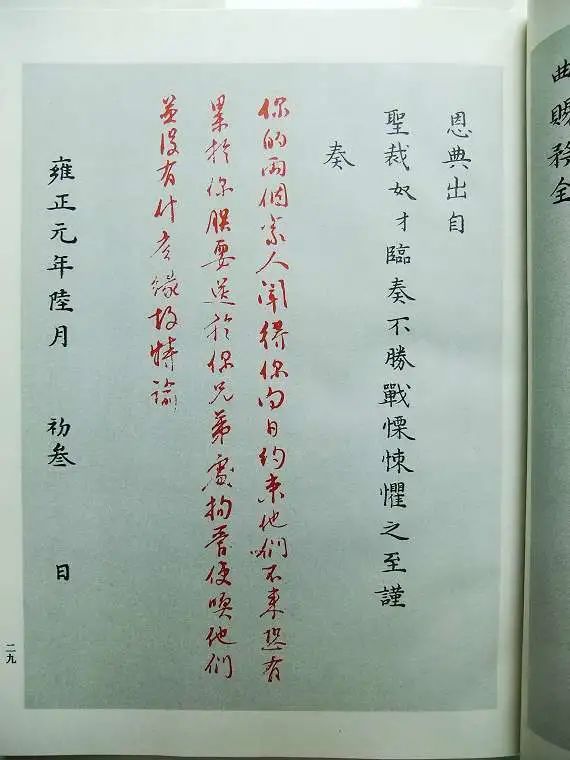 曲賜務全
恩典出自
聖裁奴才臨奏不勝戰慄悚懼之至謹
奏
你的兩個家人聞得你向日約束他們不來恐有
累於你朕要送於你兄弟處拘管使喚他們
並沒有什麼緣故特諭
雍正元年陸月 初叁 日
二九